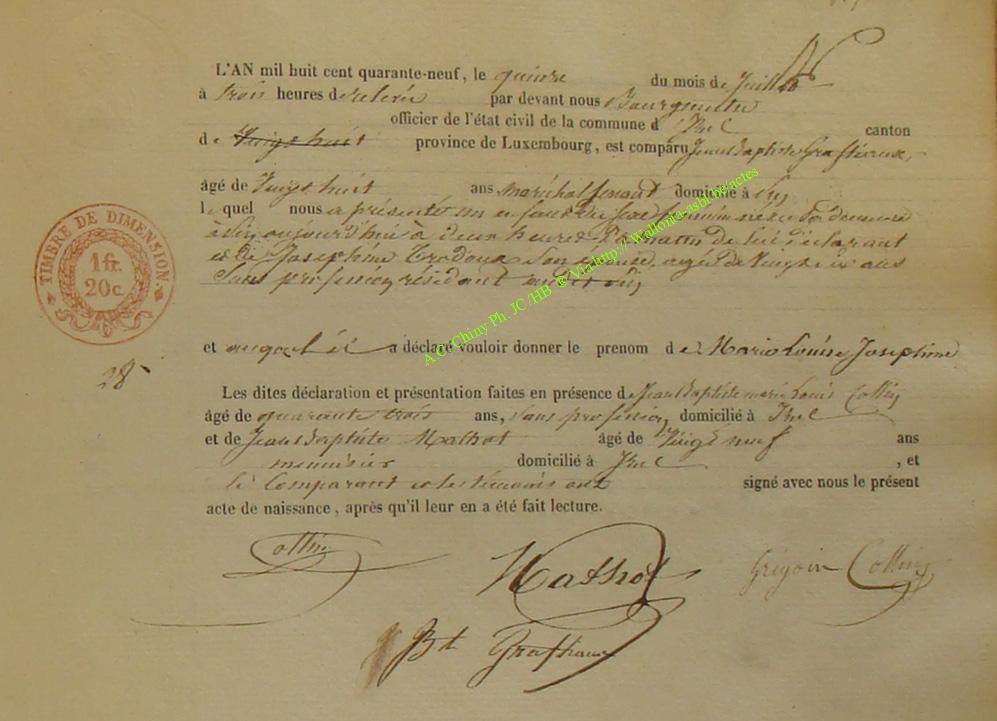 L'AN mil huit cent quarante-neuf, le quinze du mois de Juillet
à trois heures de relevée par devant nous Bourgmestre
officier de l'état civil de la commune d' Izel canton
de Vingt huit province de Luxembourg, est comparu Jean Baptiste
âgé de Vingt huit ans, maréchal ferrant domicilié à
le quel nous a présenté un enfant du sexe féminin
aujourd'hui à deux heures du matin de lui déclarant
et de Joséphine son épouse, agée de Vingt six ans
Sans profession résidant
TIMBRE DE DIMENSION.
1 fr.
20c.
et auquel il a déclaré vouloir donner le prenom de Marie Louise Josephine
28
Les dites déclaration et présentation faites en présence de Jean Baptiste marie Louis Collin
âgé de quarante trois ans, sans profession domicilié à Izel
et de Jean Baptiste Mathot âgé de Vingt neuf ans
menuisier domicilié à Izel , et
le Comparant et les témoins ont signé avec nous le présent
acte de naissance, après qu'il leur en a été fait lecture.
Collin
Mathot
Grégoire Collin
J Bt
A.C. Chiny Ph. JC/HB @ Via http://Wallonia-asbl.be/actes